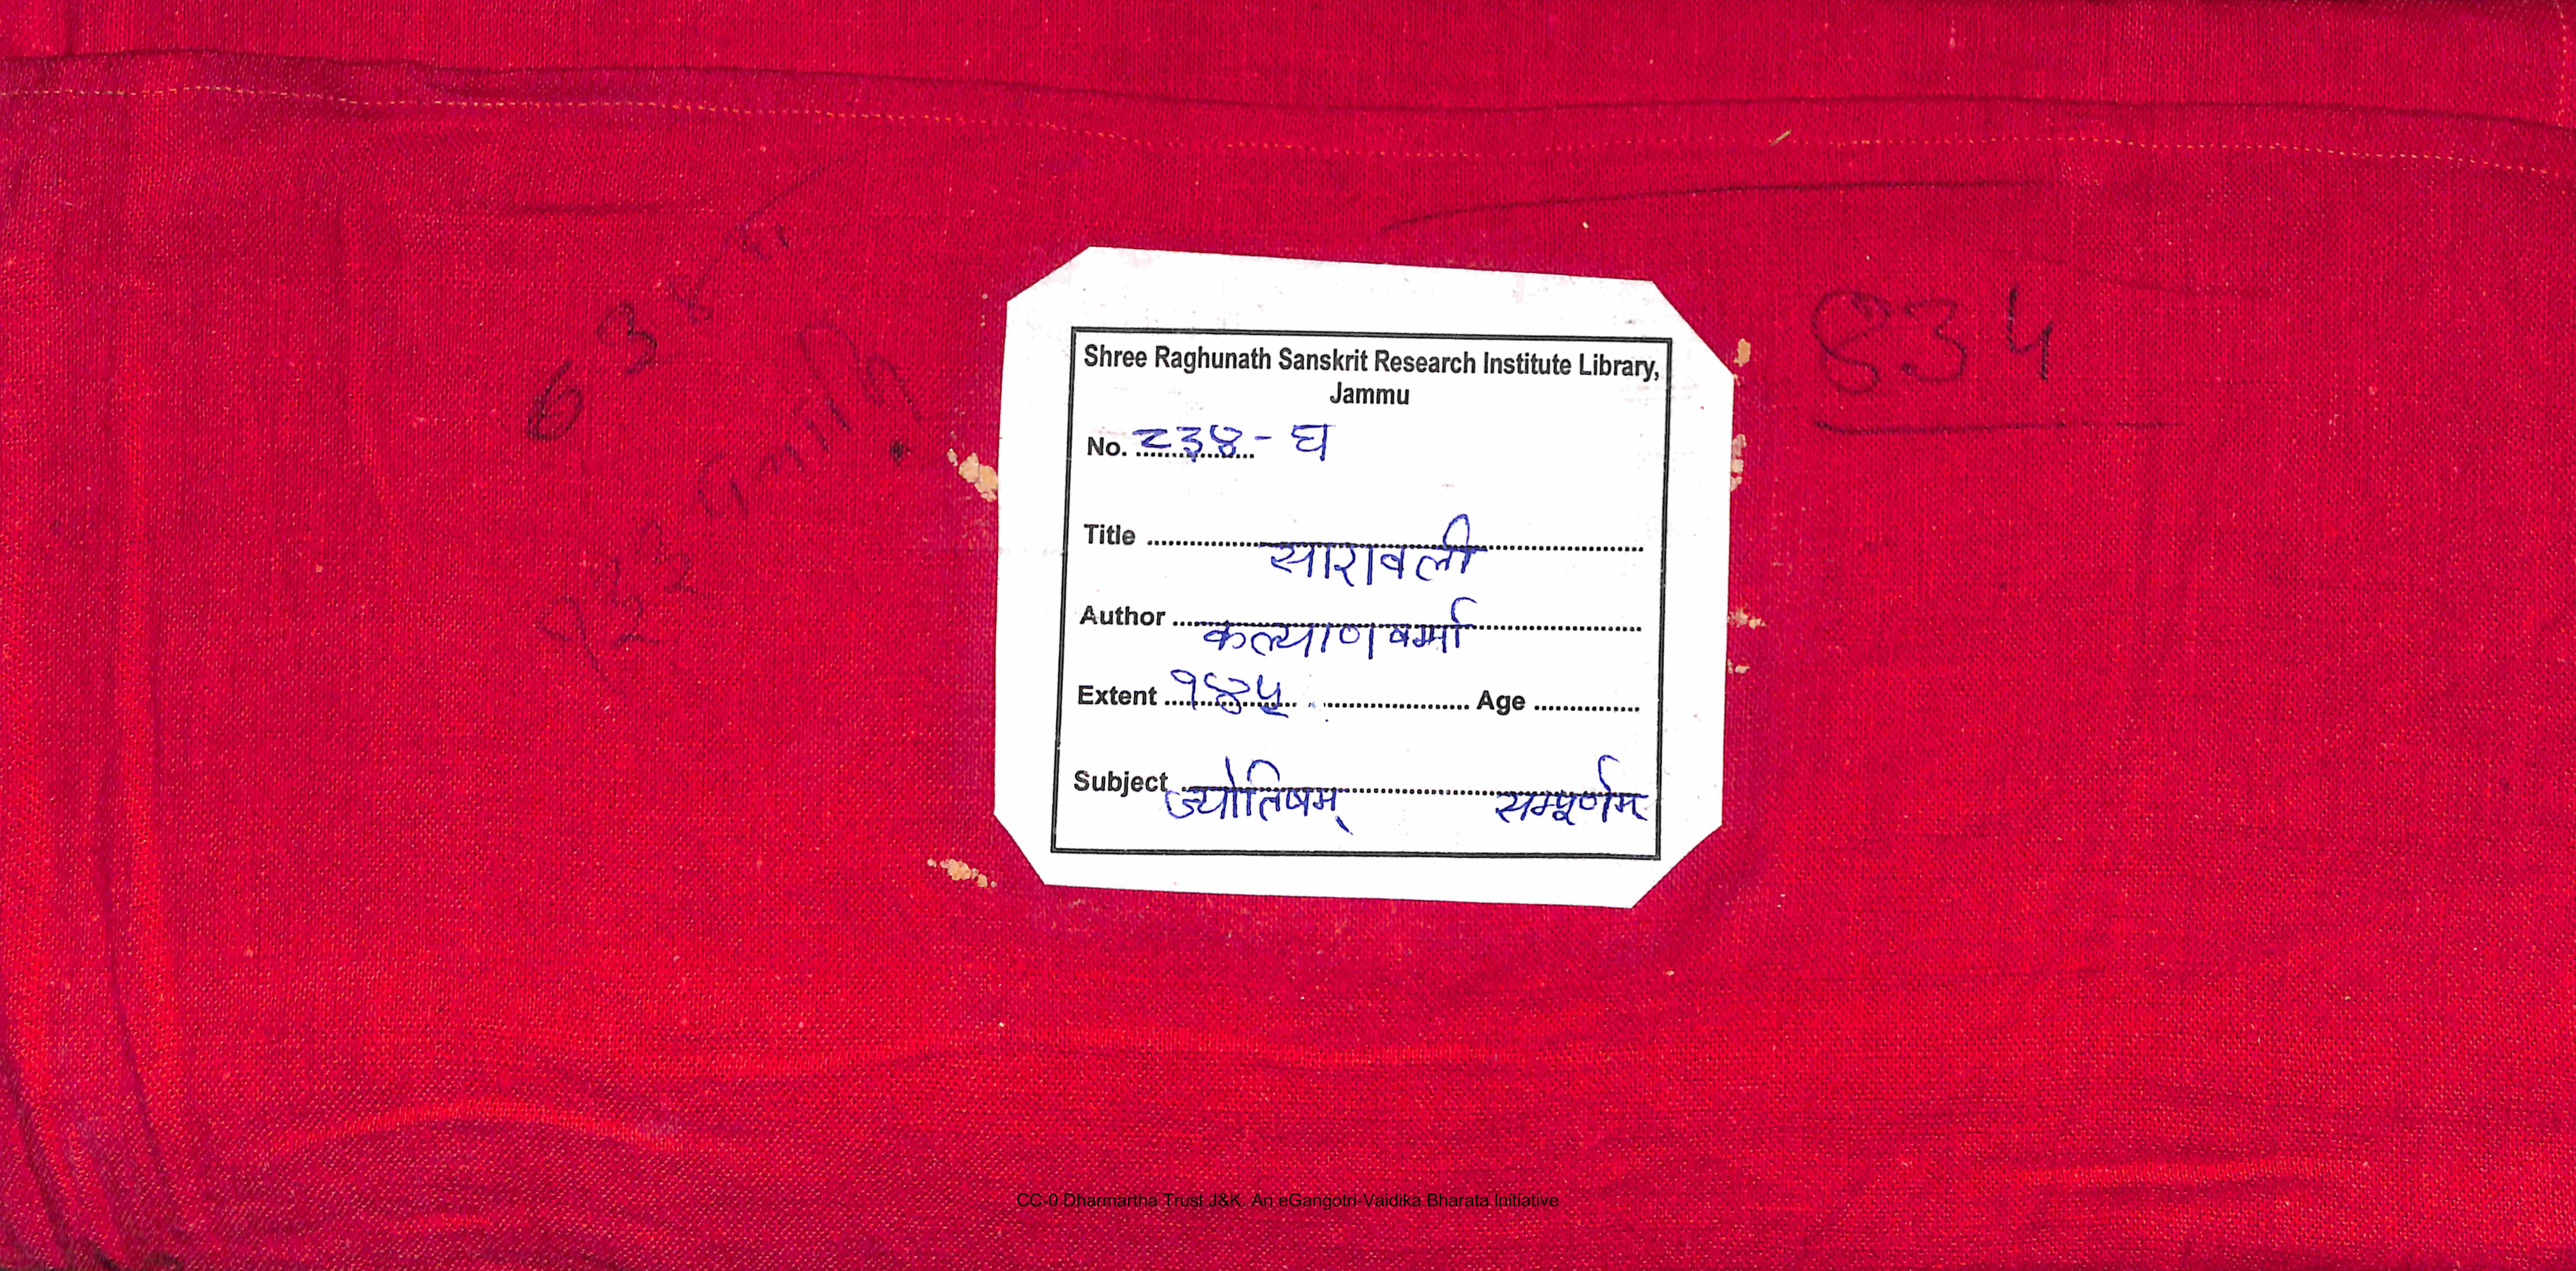 Shree Raghunath Sanskrit Research Institute Library,
Jammu
No. ८३४ - घ
Title सारावली
Author कल्याणवर्मा
Extent १४३५ Age
Subject ज्योतिषम् सम्पूर्णम्
CC-0 Dharmartha Trust J&K. An eGangotri-Vaidika Bharata Initiative